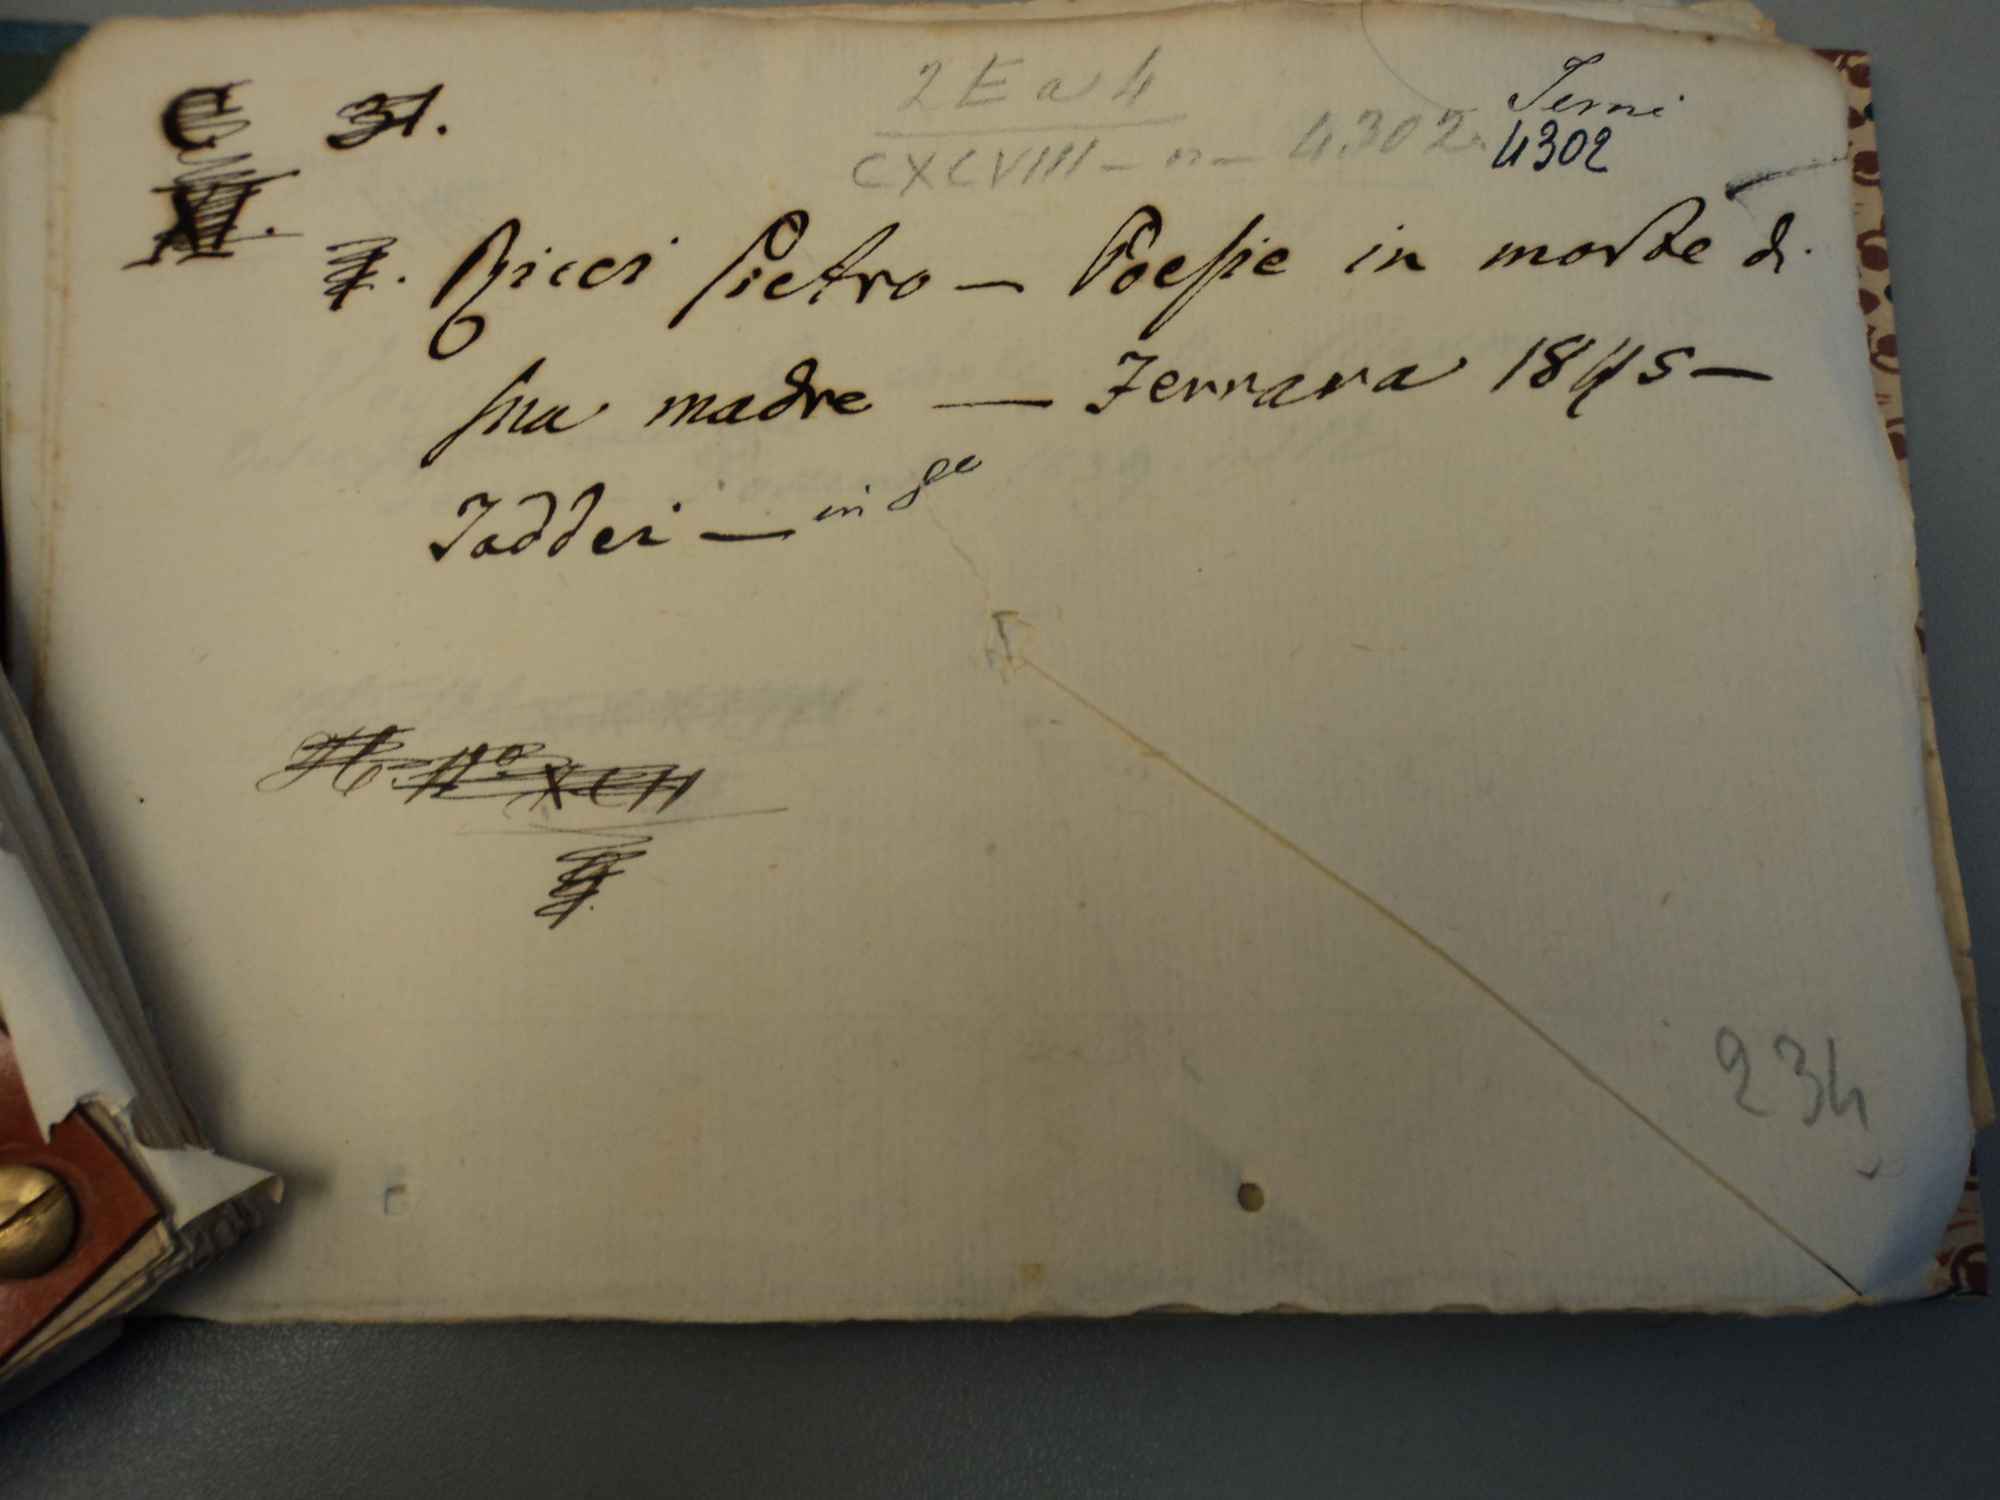 C 31.
XI.
2 E a 4
CXCVIII - n - 4302.
4302
Ricci Pietro — Poesie in morte di
sua madre — Ferrara 1845 —
Taddei — in 8°
N.° XCII
234